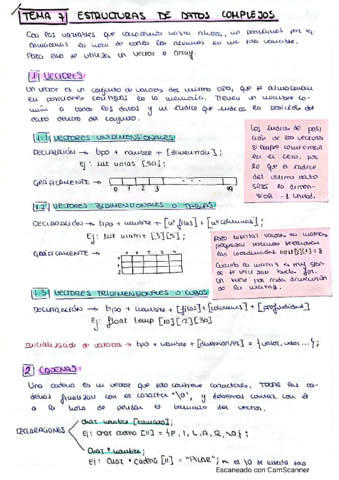 TEMA 7 ESTRUCTURAS DE DATOS COMPLEJOS
Con las variables que conocíamos hasta ahora, no podíamos por ej.
almacenar la nota de todos los alumnos en una sola variable.
Para ello se utiliza un vector o array.
1 VECTORES
Un vector es un conjunto de valores del mismo tipo, que se almacenan
en posiciones contiguas en la memoria. Tienen un nombre co-
mún a todos los datos y un índice que indica la posición del
dato dentro del conjunto.
1.1 VECTORES UNIDIMENSIONALES
DECLARACIÓN → tipo + nombre + [dimensión];
Ej: int notas [50];
GRÁFICAMENTE →
0 1 2 3 49
Los índices de posi
ción de los vectores
siempre comienzan
en el cero, por
lo que el índice
del último dato
será la dimen-
sión - 1 unidad.
1.2 VECTORES BIDIMENSIONALES O TABLAS
DECLARACIÓN → tipo + nombre + [nº filas] + [nº columnas];
Ej: int matriz [3][5];
GRÁFICAMENTE →
Para insertar valores en matrices
pequeñas podemos
las coordenadas
Cuando la matriz es muy gran-
de se utilizan bucles for.
Un bucle por cada dimensión
de la matriz.
1.3 VECTORES TRIDIMENSIONALES O CUBOS
DECLARACIÓN → tipo + nombre + [filas] + [columnas] + [profundidad]
Ej: float temp [10][12][30]
Inicialización de vectores → tipo + nombre + [dimensiones] = {valor, valor...};
2 CADENAS
Una cadena es un vector que solo contiene caracteres. Todas las ca-
denas finalizan con el carácter "\0", y debemos contar con él
a la hora de pensar el tamaño del vector.
DECLARACIONES
char nombre [tamaño];
Ej: char cadena [11] = {P, I, L, A, R, \0};
char * nombre;
Ej: char * cadena [11] = "PILAR"; → el \0 se inserta solo
Escaneado con CamScanner